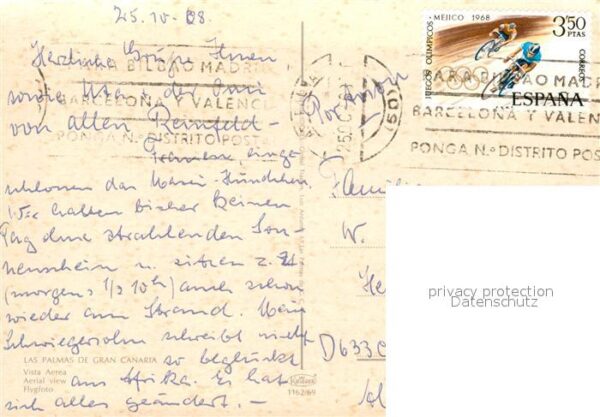 25.10.68
Herzliche Grüße Ihnen,
sowie Uta u. der Omi
von allen Reinfeld-
einge-
schlossen das Hündchen.
Wir hatten bisher keinen
Tag ohne strahlenden Son-
nenschein u. sitzen z. Zt.
(morgens 1/2 10h) auch schon
wieder am Strand. Mein
Schwiegersohn schreibt nicht
so beglückt
aus Afrika. Es hat
sich alles geändert. –
LAS PALMAS DE GRAN CANARIA
Vista Aerea
Aerial view
Flugfoto
1162/69
PARA BILBAO MADRID
BARCELONA Y VALENCIA
PONGA N.º DISTRITO POSTAL
Por avion
MEJICO 1968
JUEGOS OLIMPICOS
3,50
PTAS
CORREOS
ESPAÑA
PARA BILBAO MADR
BARCELONA Y VALEN
PONGA N.º DISTRITO POS
Famili
W.
He
D633
privacy protection
Datenschutz